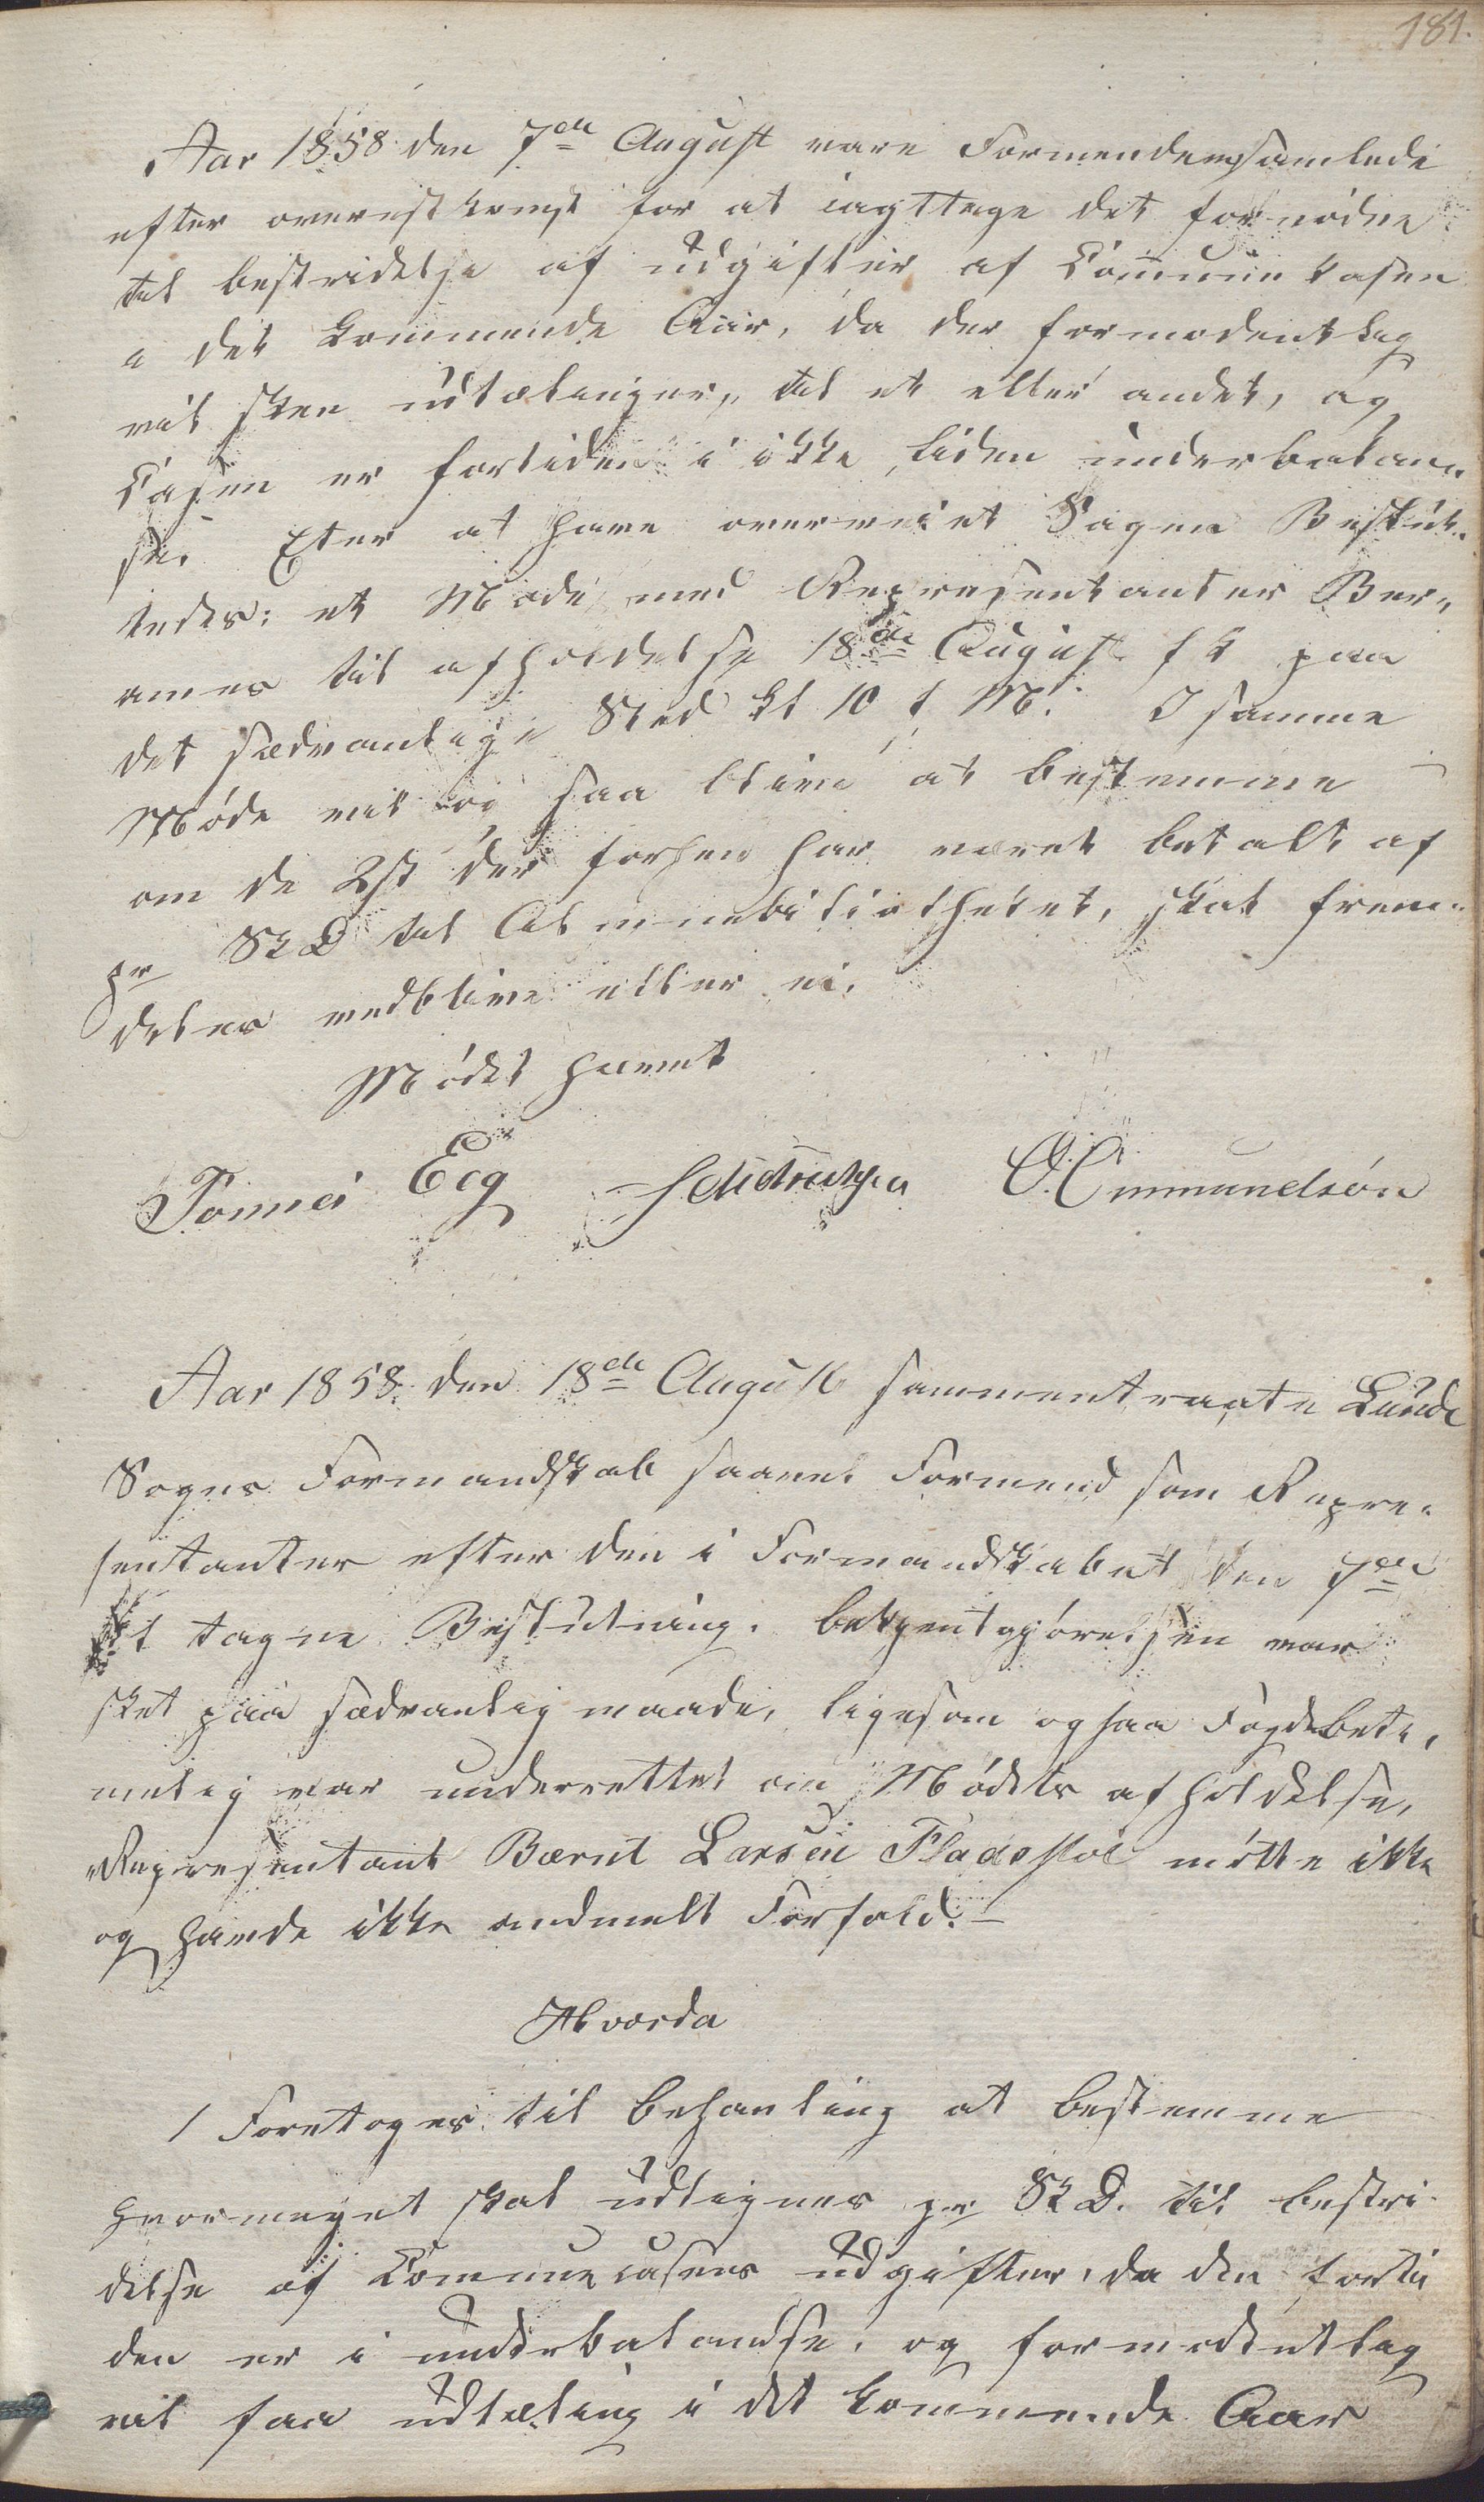 181.
Aar 1858 den 7de August vare Formendene samlede
efter overenskomst for at iagttage det fornødne
til bestridelse af udgifter af Communekasen
i det kommende Aar, da der formodentlig
vil skee udtælinger, til et eller andet, og
Casen er fortiden i ikke liden underbalan-
se. Efter at have overveiet Sagen Beslut-
tedes: et Møde med Representanter Ber-
ames til afholdelse 18de August f k paa
det sædvanlige Sted kl 10 f M: I samme
Møde vil og saa blive at bestemme
om de 2 s der forhen har været betalt af
pr SkD til Almuebibliotheket, skal frem-
deles vedblive eller ei.
Mødet hævet
Tonnes Eeg O. Ommundsøn
Aar 1858 den 18de August sammentraate Lunde
Sogns Formandskab saavel Formend som Repre-
sentanter efter den i Formandskabet den 7de
tagne Beslutning. bekjentgjørelsen var
sket paa sædvanlig maade, ligesom ogsaa Fogden bete-
melig var underrettet om Mødets afholdelse,
Representant Bærnt Larsen Fladstøl møtte ikke
og havde ikke andmelt Forfald. –
Hvorda
1 Foretoges til behanling at bestemme
hvormeget skal udlignes pr SkD. til bestri-
delse af Communecasens udgifter, da den forti
den er i underbalandse, og formodentlig
vil faa udtæling i det kommende Aar